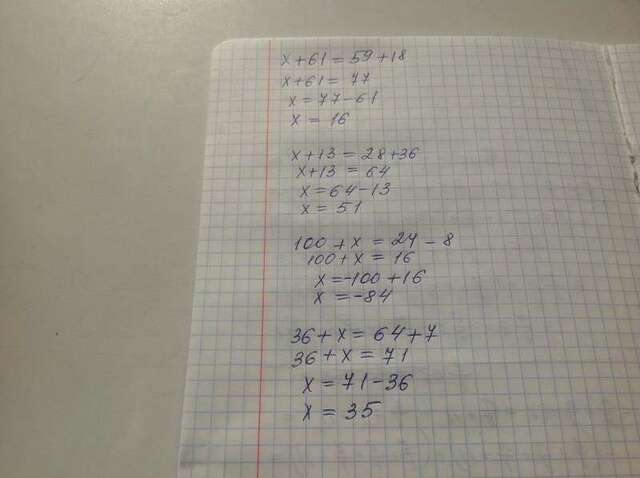 x+61=59+18
x+61=77
x=77-61
x=16
x+13=28+36
x+13=64
x=64-13
x=51
100+x=24-8
100+x=16
x=-100+16
x=-84
36+x=64+7
36+x=71
x=71-36
x=35